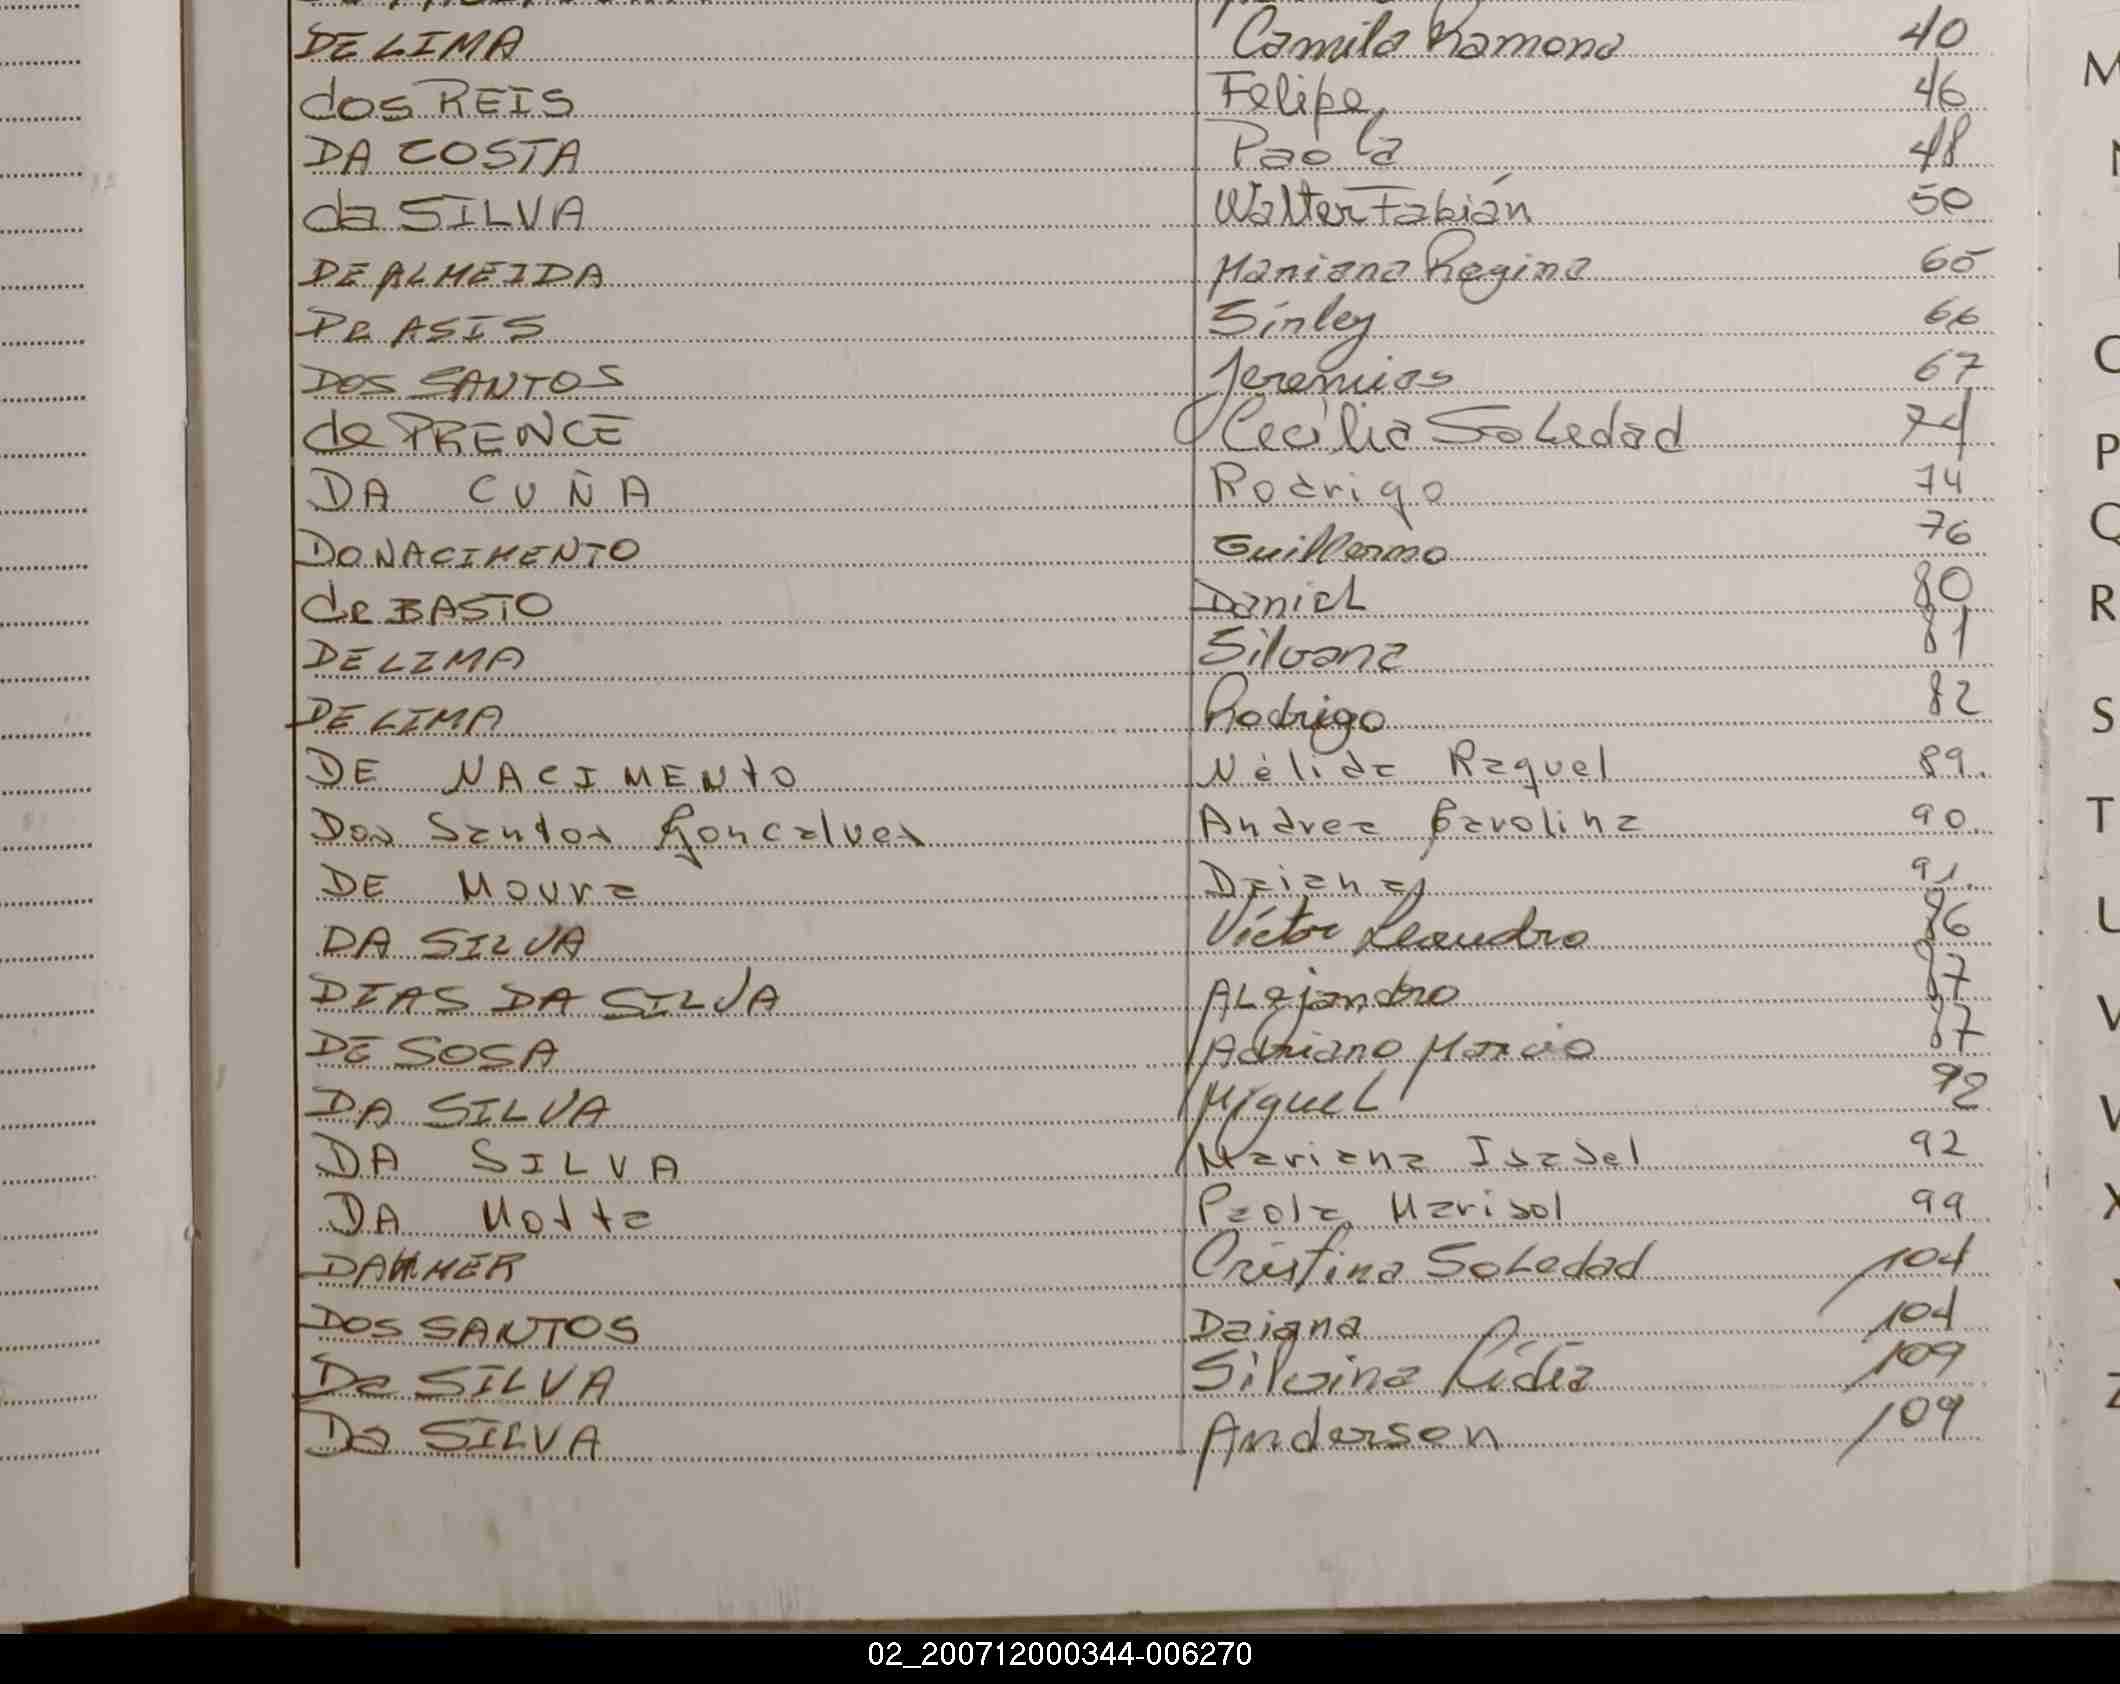 DE LIMA Camila Ramona 40
dos REIS Felipe 46
DA COSTA Paola 48
da SILVA Walter Fabián 50
DE ALMEIDA Mariana Regina 65
De ASIS Sirley 66
DOS SANTOS Jeremias 67
de PRENCE Cecilia Soledad 74
DA CUÑA Rodrigo 74
DO NACIMENTO Guillermo 76
de BASTO Daniel 80
DE LIMA Silvana 81
DE LIMA Rodrigo 82
DE NACIMENto Nélida Raquel 89
Dos Santos Goncalves Andrea Carolina 90
DE Moura Daiana 91
DA SILVA Víctor Leandro 86
DIAS DA SILVA Alejandro 87
DE SOSA Adriano Marcio 87
DA SILVA Miguel 92
DA SILVA Mariana Isabel 92
DA Motta Paola Marisol 99
DAHMER Cristina Soledad 104
DOS SANTOS Daiana 104
Da SILVA Silvina Lidia 109
Da SILVA Anderson 109
M
O
P
Q
R
S
T
U
V
X
Z
02_200712000344-006270